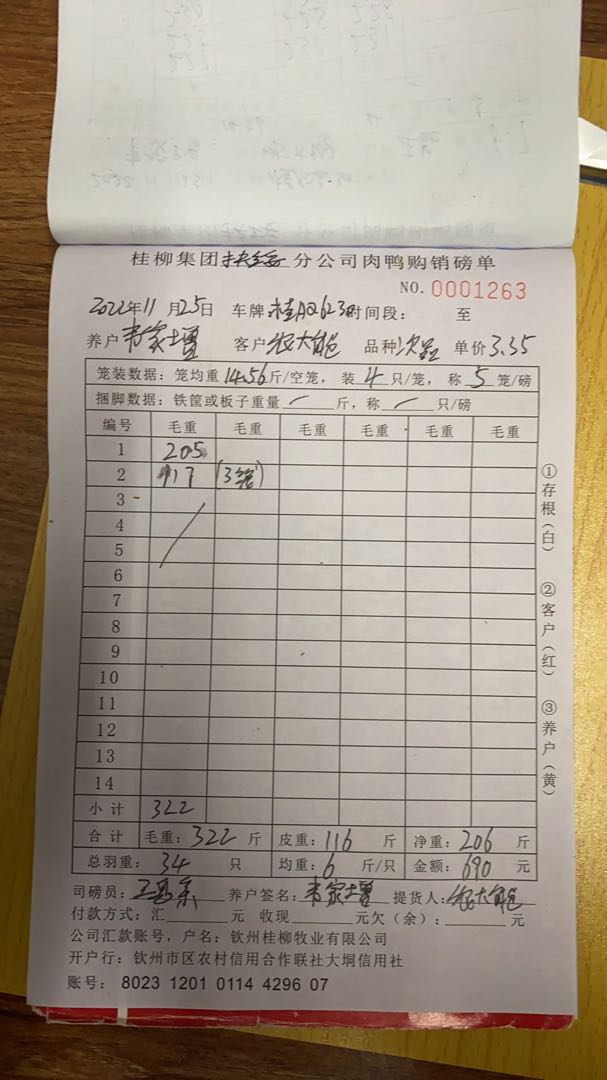 桂柳集团扶绥分公司肉鸭购销磅单
NO. 0001263
2022年11月25日 车牌 时间段: 至
养户 韦家增 客户 农大能 品种 次品 单价 3.35
笼装数据: 笼均重 14.56 斤/空笼, 装 4 只/笼, 称 5 笼/磅
捆脚数据: 铁筐或板子重量 — 斤, 称 — 只/磅
编号 毛重 毛重 毛重 毛重 毛重 毛重
1 205
2 117 (3笼)
3
4
5
6
7
8
9
10
11
12
13
14
小计 322
合计 毛重: 322 斤 皮重: 116 斤 净重: 206 斤
总羽重: 34 只 均重: 6 斤/只 金额: 690 元
司磅员: 养户签名: 韦家增 提货人: 农大能
付款方式: 汇 元 收现 元欠(余): 元
公司汇款账号, 户名: 钦州桂柳牧业有限公司
开户行: 钦州市区农村信用合作联社大垌信用社
账号: 8023 1201 0114 4296 07
①存根(白)
②客户(红)
③养户(黄)